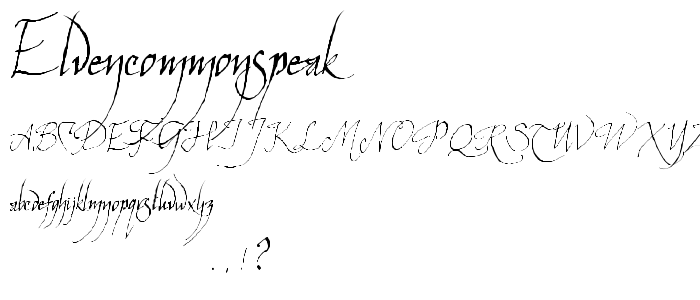 Elvencommonspeak
ABCDEFGHIJKLMNOPQRSTUVWXYZ
abcdefghijklmnopqrstuvwxyz
. , ! ?